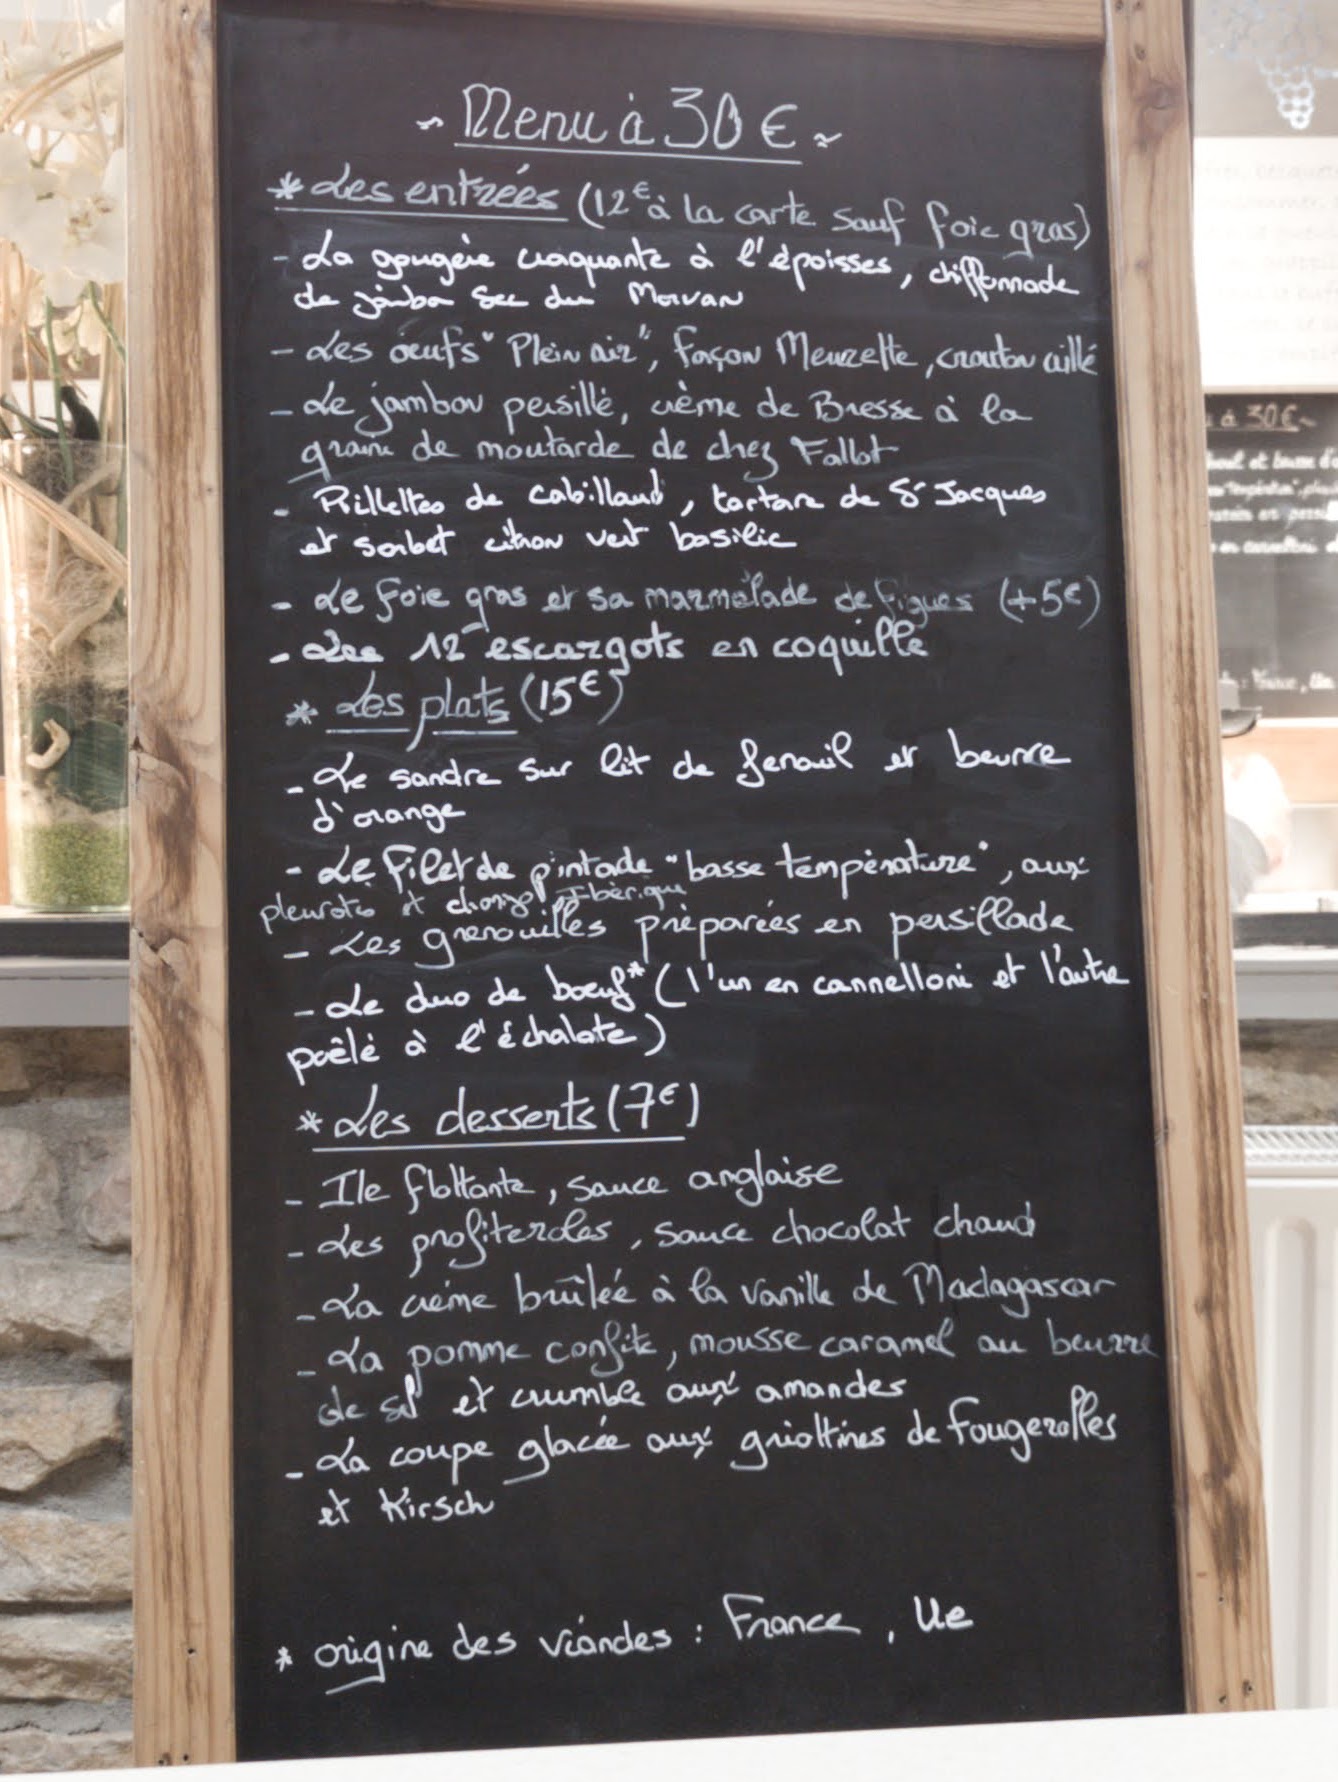 ~ Menu à 30 € ~
* Les entrées (12€ à la carte sauf foie gras)
- La gougère craquante à l'époisses, chiffonnade
de jambon sec du Morvan
- Les oeufs "Plein air", façon Meurette, crouton aillé
- Le jambon persillé, crème de Bresse à la
graine de moutarde de chez Fallot
- Rillettes de cabillaud, tartare de St Jacques
et sorbet citron vert basilic
- Le foie gras et sa marmelade de figues (+5€)
- Les 12 escargots en coquille
* Les plats (15€)
- Le sandre sur lit de fenouil et beurre
d'orange
- Le filet de pintade "basse température", aux
pleurotes et chorizo Ibérique
- Les grenouilles préparées en persillade
- Le duo de boeuf* (l'un en cannelloni et l'autre
poêlé à l'échalote)
* Les desserts (7€)
- Ile flottante, sauce anglaise
- Les profiteroles, sauce chocolat chaud
- La crème brûlée à la vanille de Madagascar
- La pomme confite, mousse caramel au beurre
de sel et crumble aux amandes
- La coupe glacée aux griottines de Fougerolles
et Kirsch
* origine des viandes : France, Ue
à 30€ ~